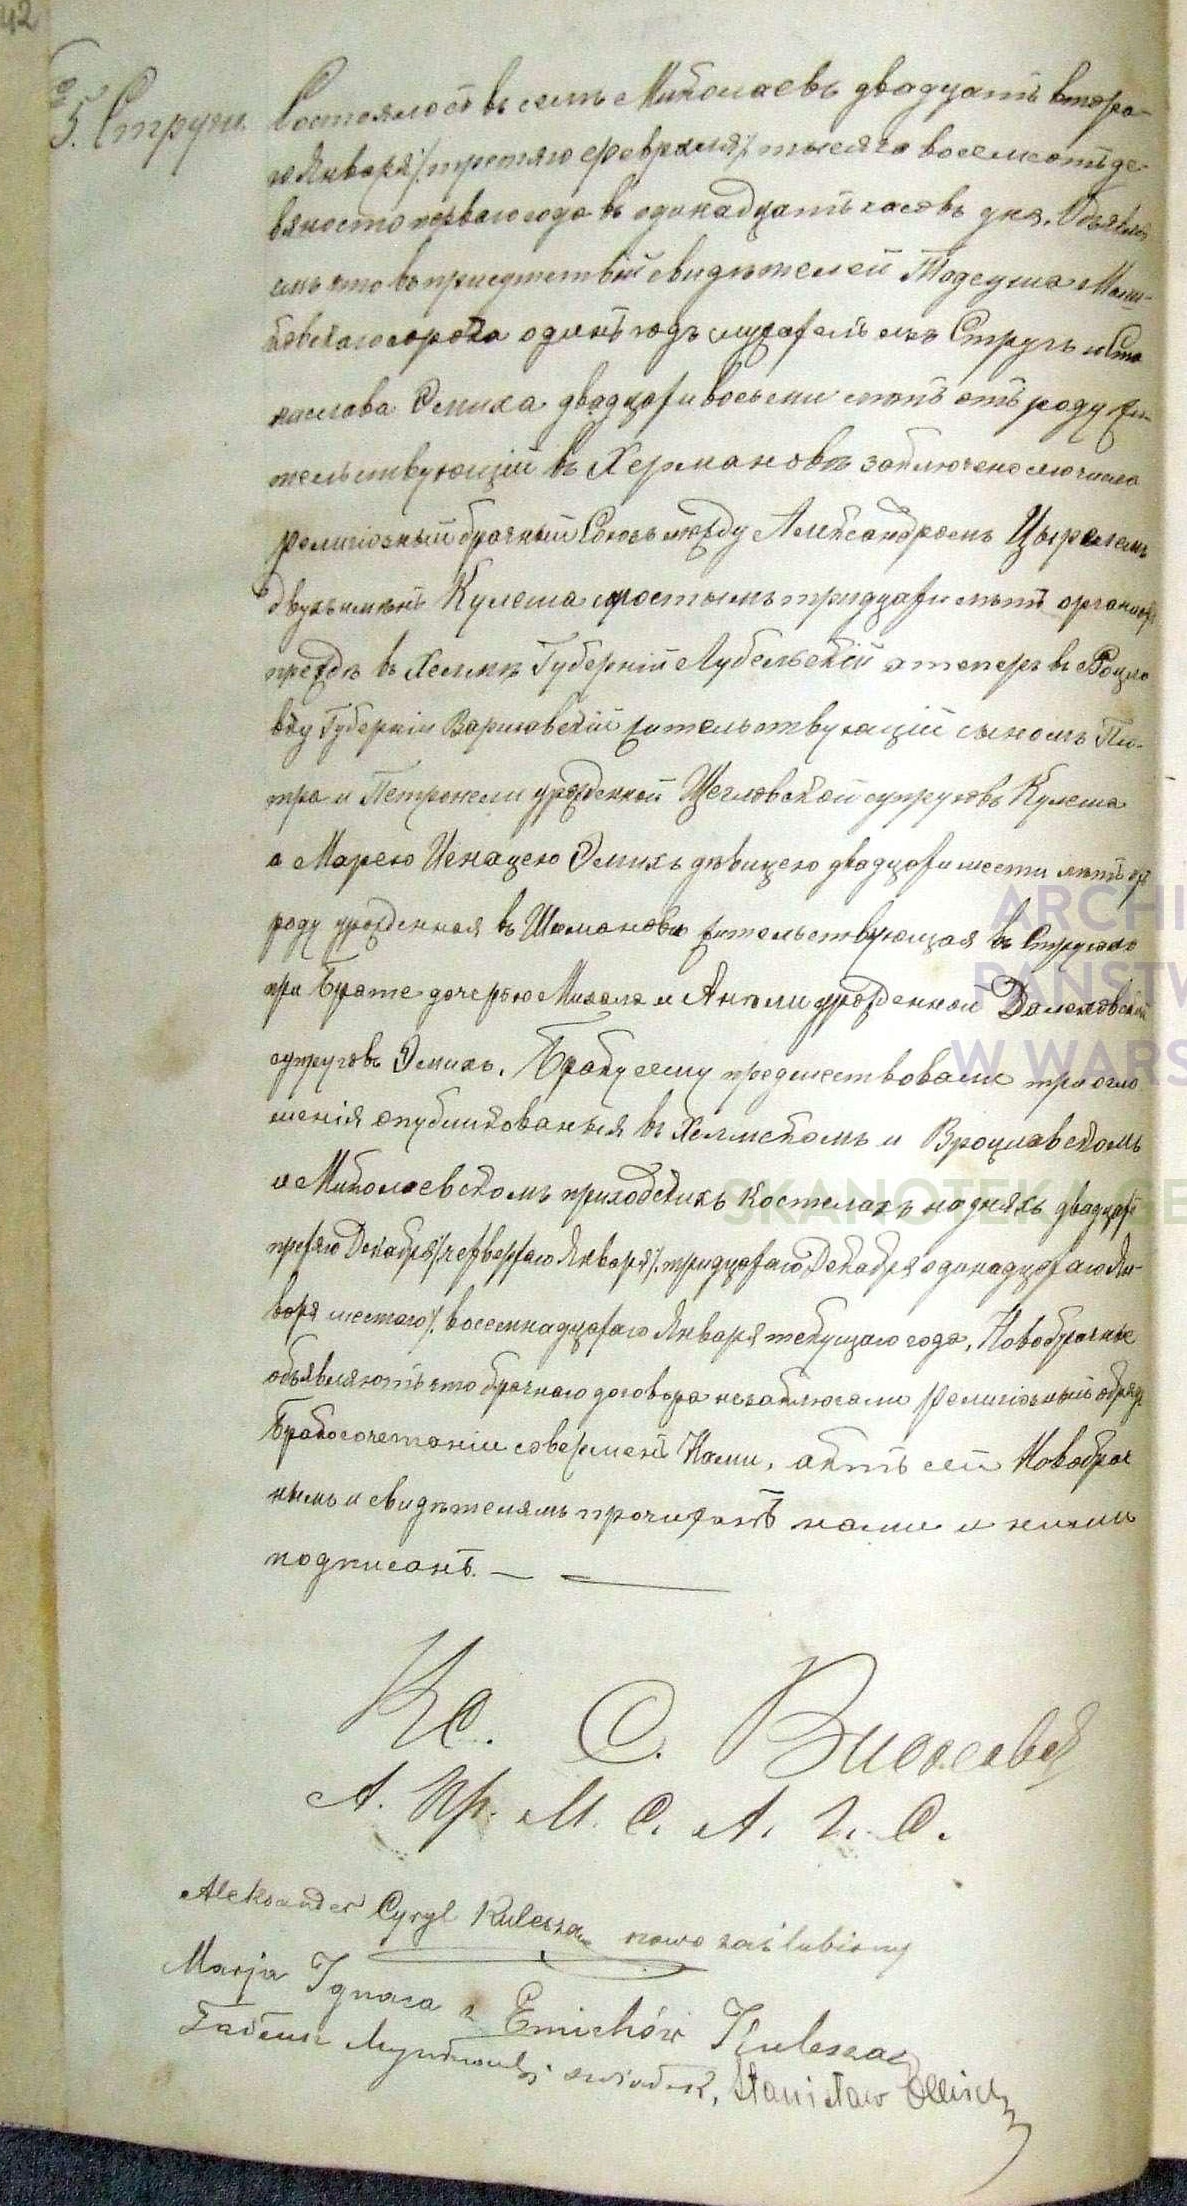 42
5. Струги
Состоялось въ селѣ Миколаевъ двадцать второ-
го Января /: третяго Февраля /: тысяча восемсотъ де-
вяносто перваго года въ одинадцать часовъ дня. Объявля
емъ что въ присутствій свидѣтелей Тадеуша
сорока одинъ годъ Стругъ и Ста
нислава Эмиха двадцати восьми лѣтъ отъ роду жи-
тельствующій въ Хермановѣ заключено сего числа
религіозный брачный Союзъ между Александромъ Цыриллемъ
двухъ имянъ Кулеша холостымъ тридцати лѣтъ органистъ
прежде въ Хелмѣ Губерній Любельскій а теперъ въ Вроцла
вку Губерніи Варшавскій жительствующій сыномъ Пі-
тра и Петронели урожденной Щегловской супруговъ Кулеша
а Марею Игнацею Эмихъ дѣвицею двадцати шести лѣтъ отъ
роду урожденная въ Шимановѣ жительствующая въ Стругахъ
при Братѣ дочерью Михала и Анѣли урожденной
супруговъ Эмихъ. Браку сему предшествовали три огла
шенія опубликованыя въ Хелмскомъ и Вроцлавскомъ
и Миколаевскомъ приходскихъ Костелахъ на дняхъ двадцать
третяго Декабря /: четвертаго Января /: тридцатаго Декабря одинадцатаго Ян-
варя шестаго /: восемнадцатаго Января текущаго года. Новобрачные
объявляютъ что брачнаго договора незаключали религіозный обрядъ
Бракосочетаніи совершенъ Нами, актъ сей Новобрач
нымъ и свидѣтелямъ прочитанъ нами и ними
подписанъ. —
Кс. С.
А. Пр. М. С. А. Г. С.
Aleksander Cyryl Kulesza nowo zaślubiony
Marja Ignaca z Emichów Kulesza
Tadeusz świadek, Stanisław Emich
ARCHI
PAŃSTW
W WARS
SKANOTEKA GE